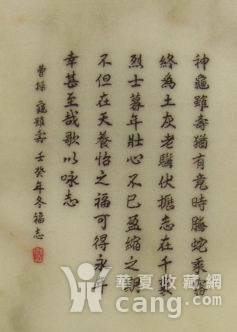 神龜雖壽猶有竟時騰蛇乘霧
終為土灰老驥伏櫪志在千里
烈士暮年壯心不已盈縮之期
不但在天養怡之福可得永年
幸甚至哉歌以咏志
曹操 龜雖壽 壬癸年冬福志
华夏收藏网
cang.com